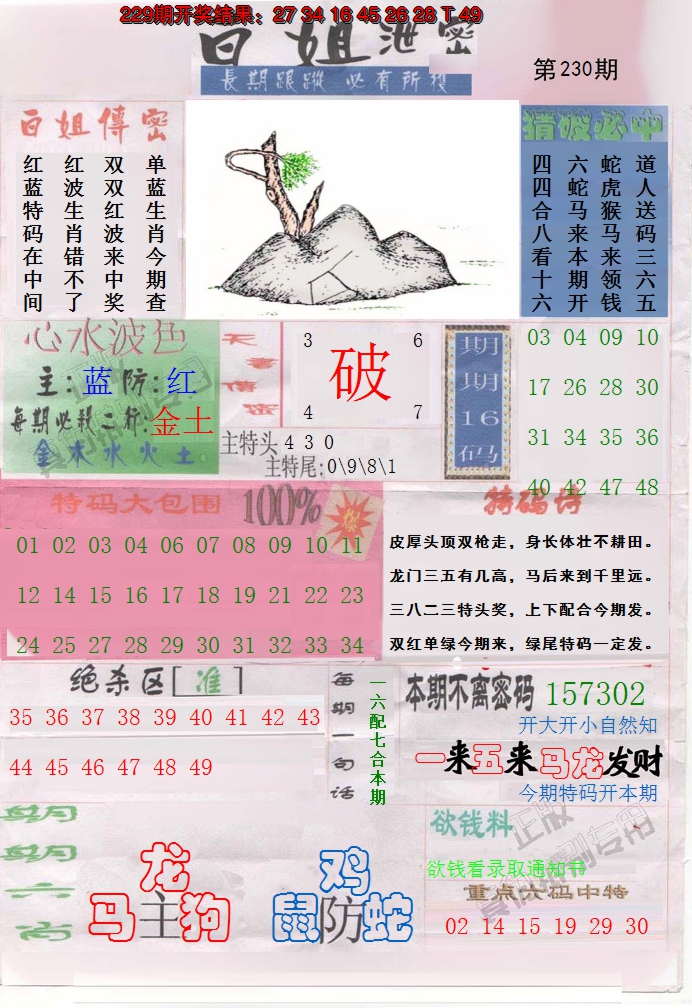 229期开奖结果：27 34 16 45 26 28 T 49
白姐泄密
長期跟蹤 必有所獲
第230期
白姐傳密
单蓝生肖今期查
双双红波来中奖
红波生肖错不了
红蓝特码在中间
猜波必中
道人送码三六五
蛇虎猴马来领钱
六蛇马来本期开
四四合八看十六
心水波色
主:蓝 防:红
每期必殺二行:金土
金木水火土
3 6
破
4 7
主特头430
主特尾:0\9\8\1
期期16码
03 04 09 10
17 26 28 30
31 34 35 36
40 42 47 48
特码大包围 100%
01 02 03 04 06 07 08 09 10 11
12 14 15 16 17 18 19 21 22 23
24 25 27 28 29 30 31 32 33 34
特码诗
皮厚头顶双枪走，身长体壮不耕田。
龙门三五有几高，马后来到千里远。
三八二三特头奖，上下配合今期发。
双红单绿今期来，绿尾特码一定发。
绝杀区[准]
35 36 37 38 39 40 41 42 43
44 45 46 47 48 49
每期一句话
一六配七合本期
本期不离密码 157302
开大开小自然知
一来五来马龙发财
今期特码开本期
龙
马主狗
鸡
鼠防蛇
欲钱料
欲钱看录取通知书
重点六码中特
02 14 15 19 29 30